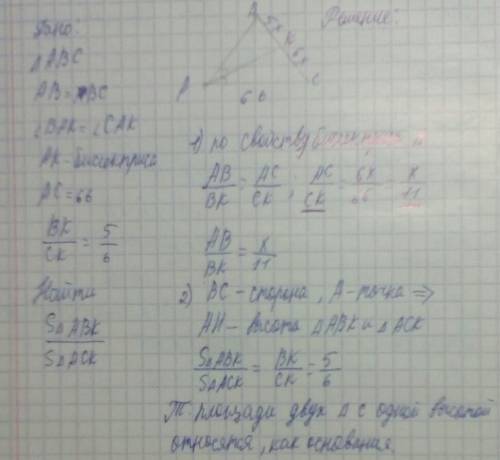 Дано:
△ABC
AB = BC
∠BAK = ∠CAK
AK - биссектриса
AC = 66
BK/CK = 5/6
Найти
S△ABK/S△ACK
Решение:
B
5x
K
6x
C
66
1) по свойству биссектрисы
AB/BK = AC/CK; AC/CK 6x/66 x/11
AB/BK = x/11
2) BC - сторона, A - точка ⇒
AH - высота △ABK и △ACK
S△ABK/S△ACK = BK/CK = 5/6
Т. площади двух △ с одной высотой
относятся, как основания.